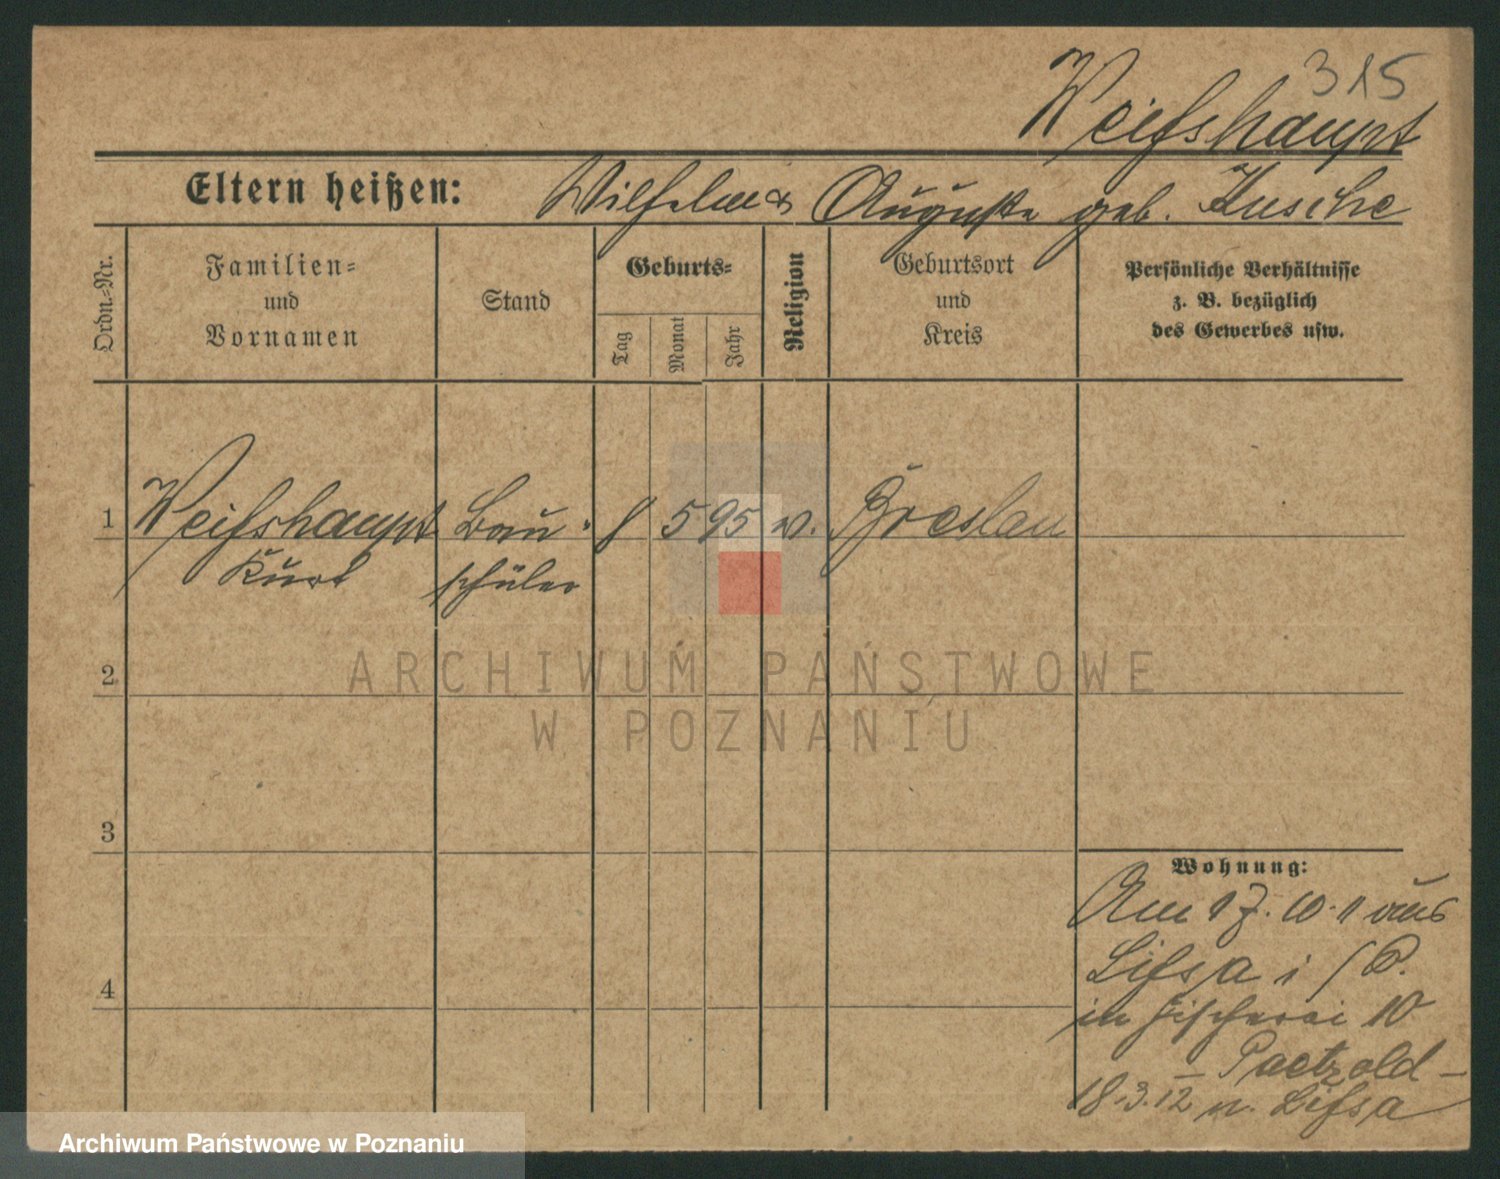 315
Weifshaupt
Eltern heißen: Wilhelm & Auguste geb. Kusche
Ordn.-Nr.
Familien-
und
Vornamen
Stand
Geburts-
Tag
Monat
Jahr
Religion
Geburtsort
und
Kreis
Persönliche Verhältnisse
z. B. bezüglich
des Gewerbes usw.
1 Weifshaupt Bau- 8 5 95 ev. Breslau
Kurt schüler
2
ARCHIWUM PAŃSTWOWE
W POZNANIU
3
Wohnung:
Am 17.10.11 aus
Lifsa i/P.
4
in Fischerei 10
Paetzold –
18.3.12 n. Lifsa
Archiwum Państwowe w Poznaniu